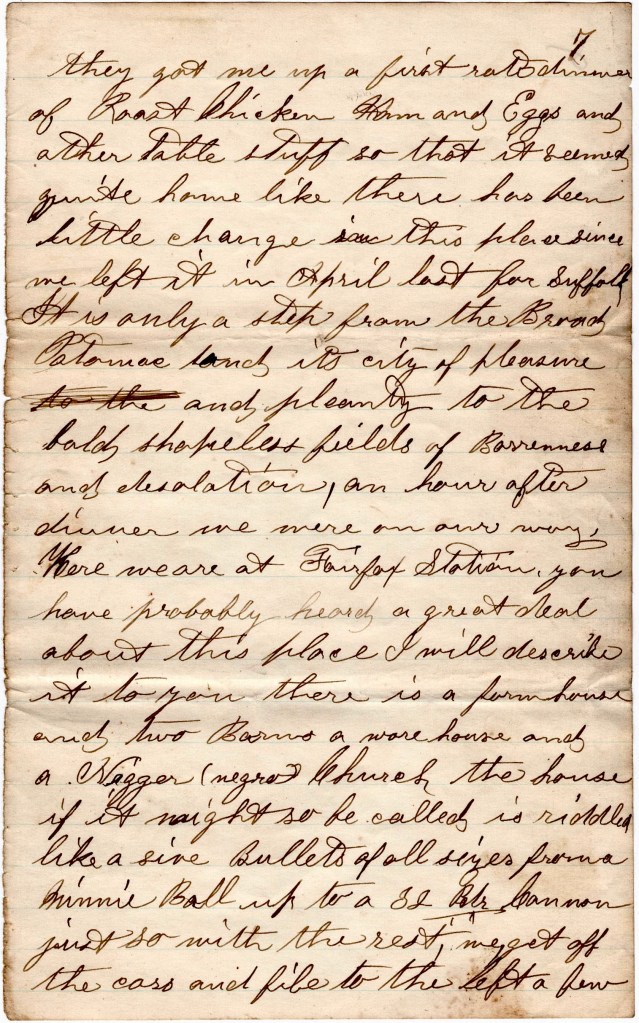 7
they got me up a first rate dinner
of Roast Chicken Ham and Eggs and
other table stuff so that it seemed
quite home like there has been
little change in this place since
we left it in April last for Suffolk
It is only a step from the Broad
Potomac and its city of pleasure
to the and pleanty to the
bald shapeless fields of Barrenness
and desolation, an hour after
dinner we were on our way,
Here we are at Fairfax Station, you
have probably heard a great deal
about this place I will describe
it to you there is a farm house
and two Barns a ware house and
a Nigger (negro) Church the house
if it might so be called is riddled
like a sive Bullets of all sizes from a
Minnie Ball up to a 32 Cannon
just so with the rest, we get off
the cars and file to the left a few